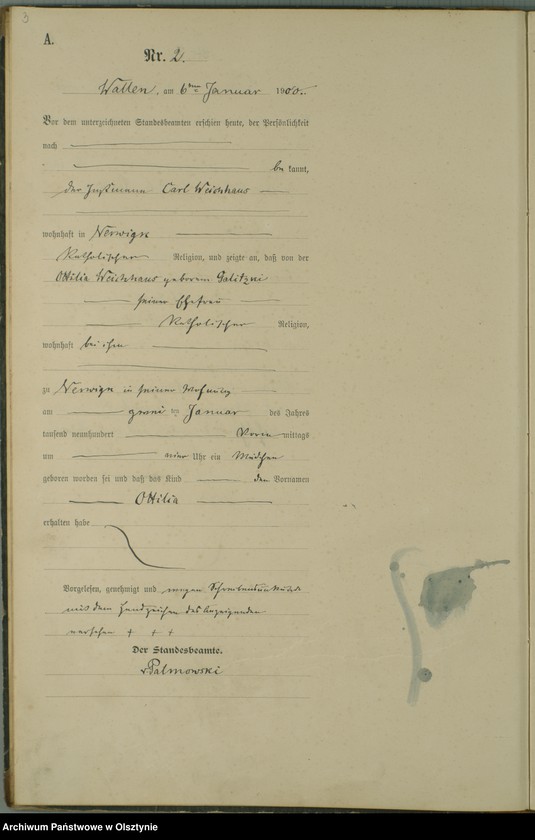 3
A.
Nr. 2.
Wallen, am 6ten Januar 1900.
Vor dem unterzeichneten Standesbeamten erschien heute, der Persönlichkeit
nach
be kannt,
der Instmann Carl Weichhaus
wohnhaft in Nerwigk
katholischer Religion, und zeigte an, daß von der
Ottilia Weichhaus geborene
seiner Ehefrau
katholischer Religion,
wohnhaft bei ihm
zu Nerwigk in seiner Wohnung
am zwei ten Januar des Jahres
tausend neunhundert Vorm mittags
um vier Uhr ein Mädchen
geboren worden sei und daß das Kind den Vornamen
Ottilia
erhalten habe
Vorgelesen, genehmigt und wegen Schreibensunkunde
mit dem Handzeichen des Anzeigenden
versehen + + +
Der Standesbeamte.
v Palmowski
Archiwum Państwowe w Olsztynie